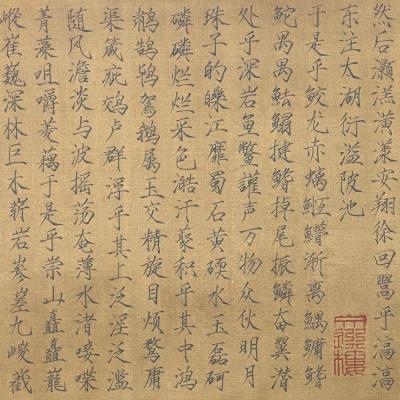 然后灏溔潢漾安翔徐回翯乎滈滈
东注太湖衍溢陂池
于是乎鲛龙赤螭䱍䲛渐离鰅鳙鳍
鮀禺禺魼鳎揵鳍掉尾振鳞奋翼潜
处乎深岩鱼鳖讙声万物众伙明月
珠子的皪江靡蜀石黄碝水玉磊砢
磷磷烂烂采色澔汗藂积乎其中鸿
鹔鹄鸨鴐鹅属玉交精旋目烦鹜庸
渠箴疵鵁卢群浮乎其上泛淫泛滥
随风澹淡与波摇荡奄薄水渚唼喋
菁藻咀嚼菱藕于是乎崇山矗矗巃
嵷崔巍深林巨木崭岩参差九嵕巀